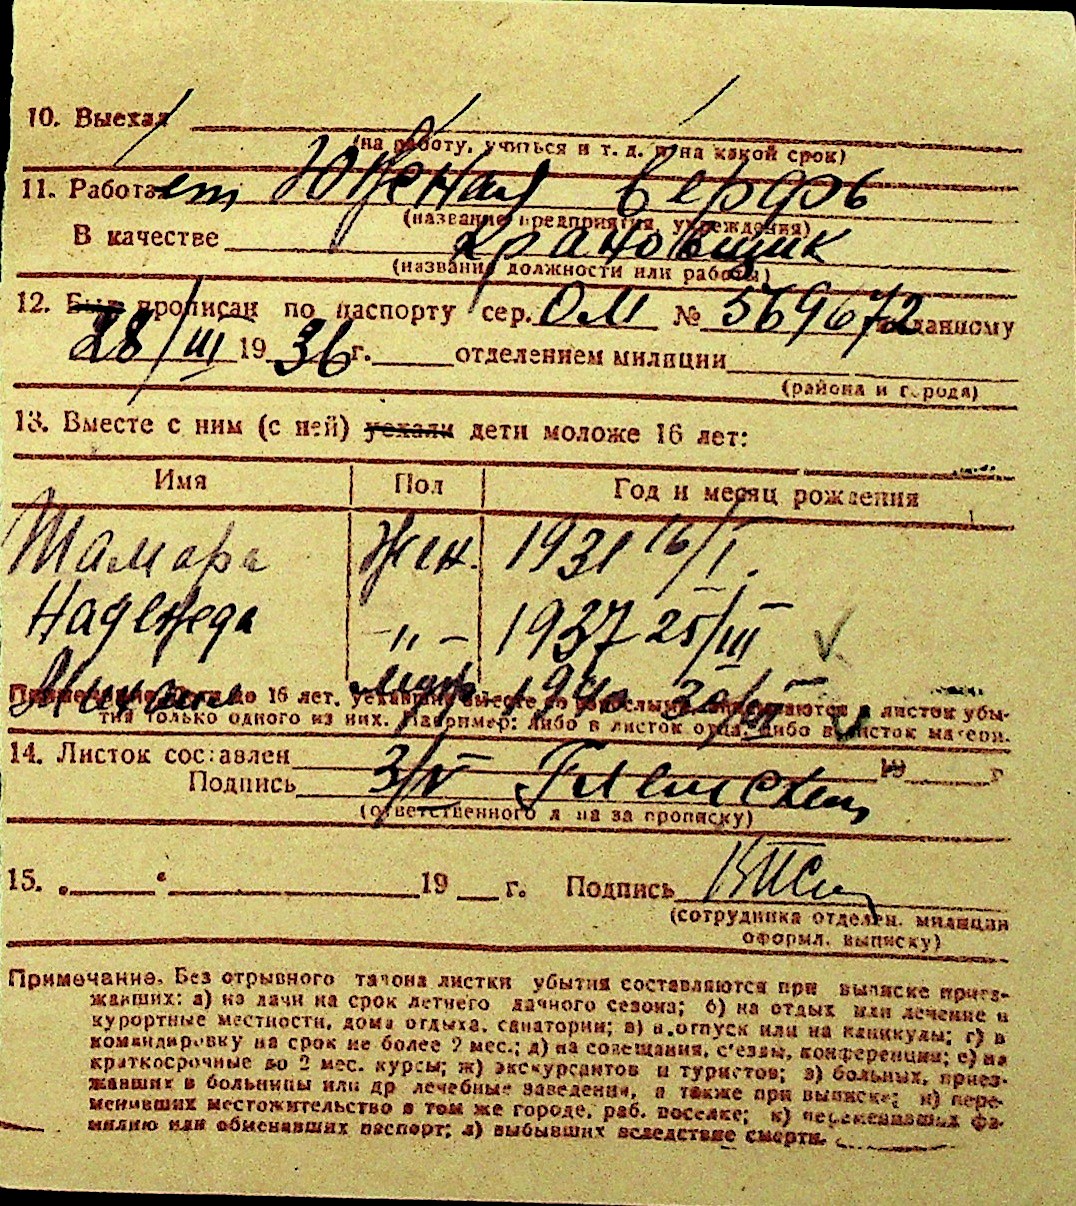 10. Выехал
(на работу, учиться и т. д. и на какой срок)
11. Работает Южная верфь
(название предприятия, учреждения)
В качестве крановщик
(название должности или работы)
12. Был прописан по паспорту сер. ОМ № 569672 выданному
28/III 1936 г. отделением милиции
(района и города)
13. Вместе с ним (с ней) уехали дети моложе 16 лет:
Имя Пол Год и месяц рождения
Тамара Жен. 1931 16/I.
Надежда -"- 1937 25/III
муж 1940 30/
Примечание. Дети до 16 лет, уехавшие вместе со взрослыми, вписываются в листок убы-
тия только одного из них. Например: либо в листок отца, либо в листок матери.
14. Листок составлен 3/V 19 г
Подпись
(ответственного л на за прописку)
15. " " 19 г. Подпись
(сотрудника отделен. милиции
оформл. выписку)
Примечание. Без отрывного талона листки убытия составляются при выписке приез-
жавших: а) на дачи на срок летнего дачного сезона; б) на отдых или лечение в
курортные местности, дома отдыха, санатории; в) в отпуск или на каникулы; г) в
командировку на срок не более 2 мес.; д) на совещания, с'езды, конференции; е) на
краткосрочные до 2 мес. курсы; ж) экскурсантов и туристов; з) больных, приез-
жавших в больницы или др лечебные заведения, а также при выписке; и) пере-
менивших местожительство в том же городе, раб. поселке; к) переменивших фа-
милию или обменявших паспорт; л) выбывших вследствие смерти.